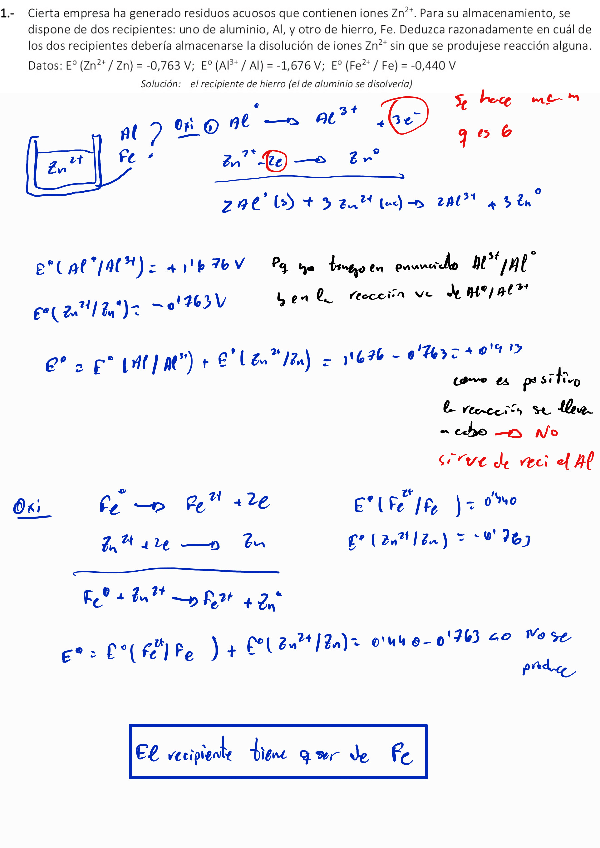 1.- Cierta empresa ha generado residuos acuosos que contienen iones Zn²⁺. Para su almacenamiento, se
dispone de dos recipientes: uno de aluminio, Al, y otro de hierro, Fe. Deduzca razonadamente en cuál de
los dos recipientes debería almacenarse la disolución de iones Zn²⁺ sin que se produjese reacción alguna.
Datos: Eº (Zn²⁺ / Zn) = -0,763 V; Eº (Al³⁺ / Al) = -1,676 V; Eº (Fe²⁺ / Fe) = -0,440 V
Solución: el recipiente de hierro (el de aluminio se disolvería)
Zn²⁺
Al
Fe
?
Oxi
Alº → Al³⁺ + 3e⁻
Se hace m.c.m
q es 6
Zn²⁺ - 2e → Znº
2Alº (s) + 3Zn²⁺ (ac) → 2Al³⁺ + 3Znº
Eº(Alº/Al³⁺) = +1'676 V
Pq yo tengo en enunciado Al³⁺/Alº
y en la reacción va de Alº/Al³⁺
Eº(Zn²⁺/Znº) = -0'763V
Eº = Eº (Al/Al³⁺) + Eº (Zn²⁺/Zn) = 1'676 - 0'763 = +0'913
como es positivo
la reacción se lleva
a cabo → No
sirve de reci el Al
Oxi
Feº → Fe²⁺ + 2e
Eº(Fe²⁺/Fe ) = 0'440
Zn²⁺ + 2e → Zn
Eº(Zn²⁺/Zn) = -0'763
Feº + Zn²⁺ → Fe²⁺ + Znº
Eº = Eº(Fe²⁺/Fe ) + Eº(Zn²⁺/Zn) = 0'440 - 0'763 <0 No se
produce
El recipiente tiene q ser de Fe